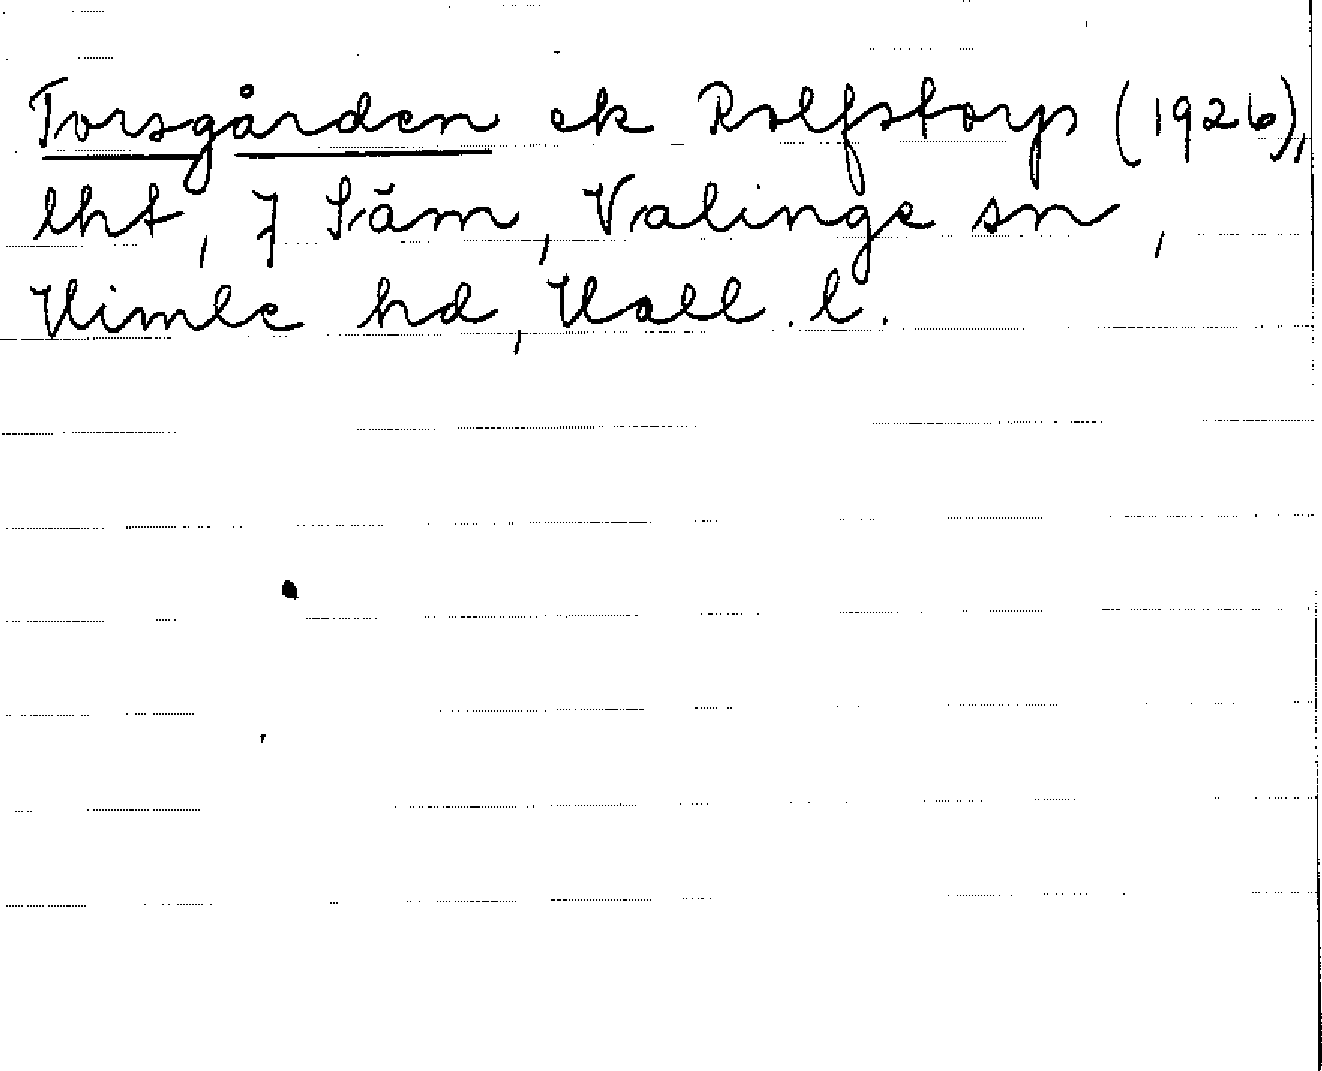 Torsgården ek Rolfstorp (1926),
lht, 7 Säm, Valinge sn,
Himle hd, Hall. l.